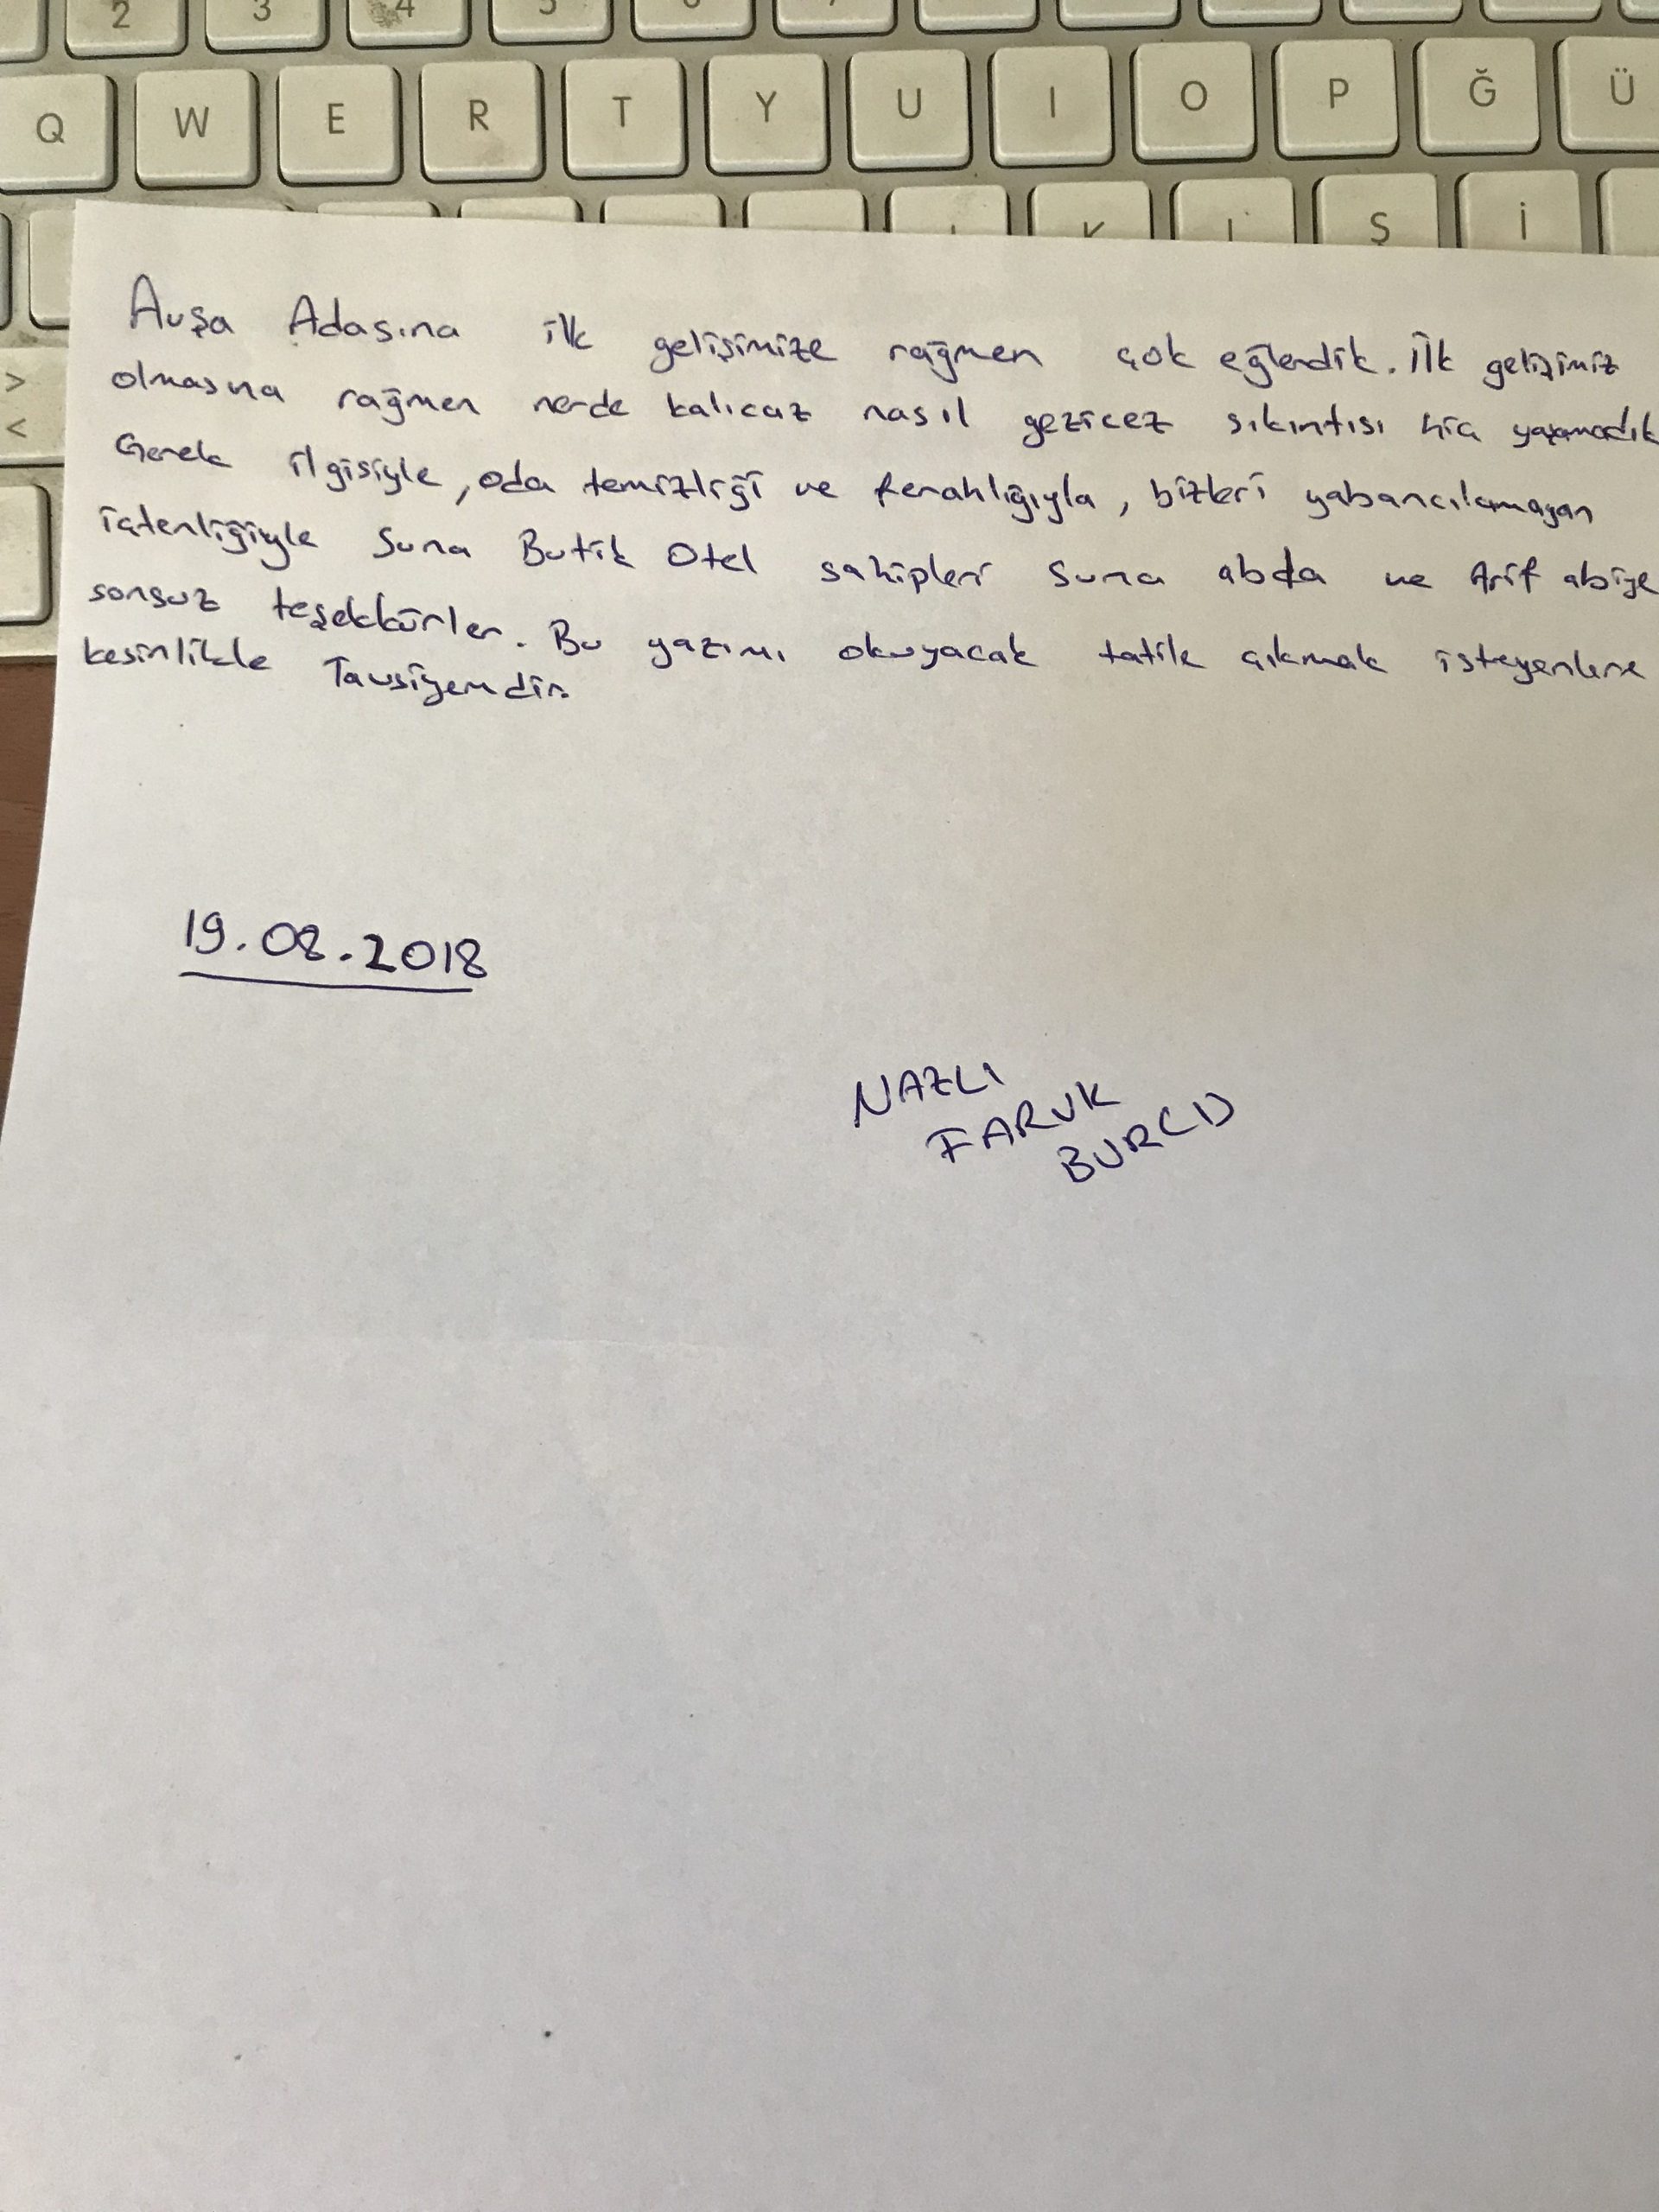 2 3 4 5
Q W E R T Y U I O P Ğ Ü
K L Ş İ
>
<
Avşa Adasına ilk gelişimize rağmen çok eğlendik. İlk gelişimiz
olmasına rağmen nerde kalıcaz nasıl gezicez sıkıntısı hiç yaşamadık
Gerek ilgisiyle, oda temizliği ve ferahlığıyla, bizleri yabancılamayan
içtenliğiyle Suna Butik Otel sahipleri Suna abla ve Arif abiye
sonsuz teşekkürler. Bu yazımı okuyacak tatile çıkmak isteyenlere
kesinlikle Tavsiyemdir.
19.08.2018
NAZLI
FARUK